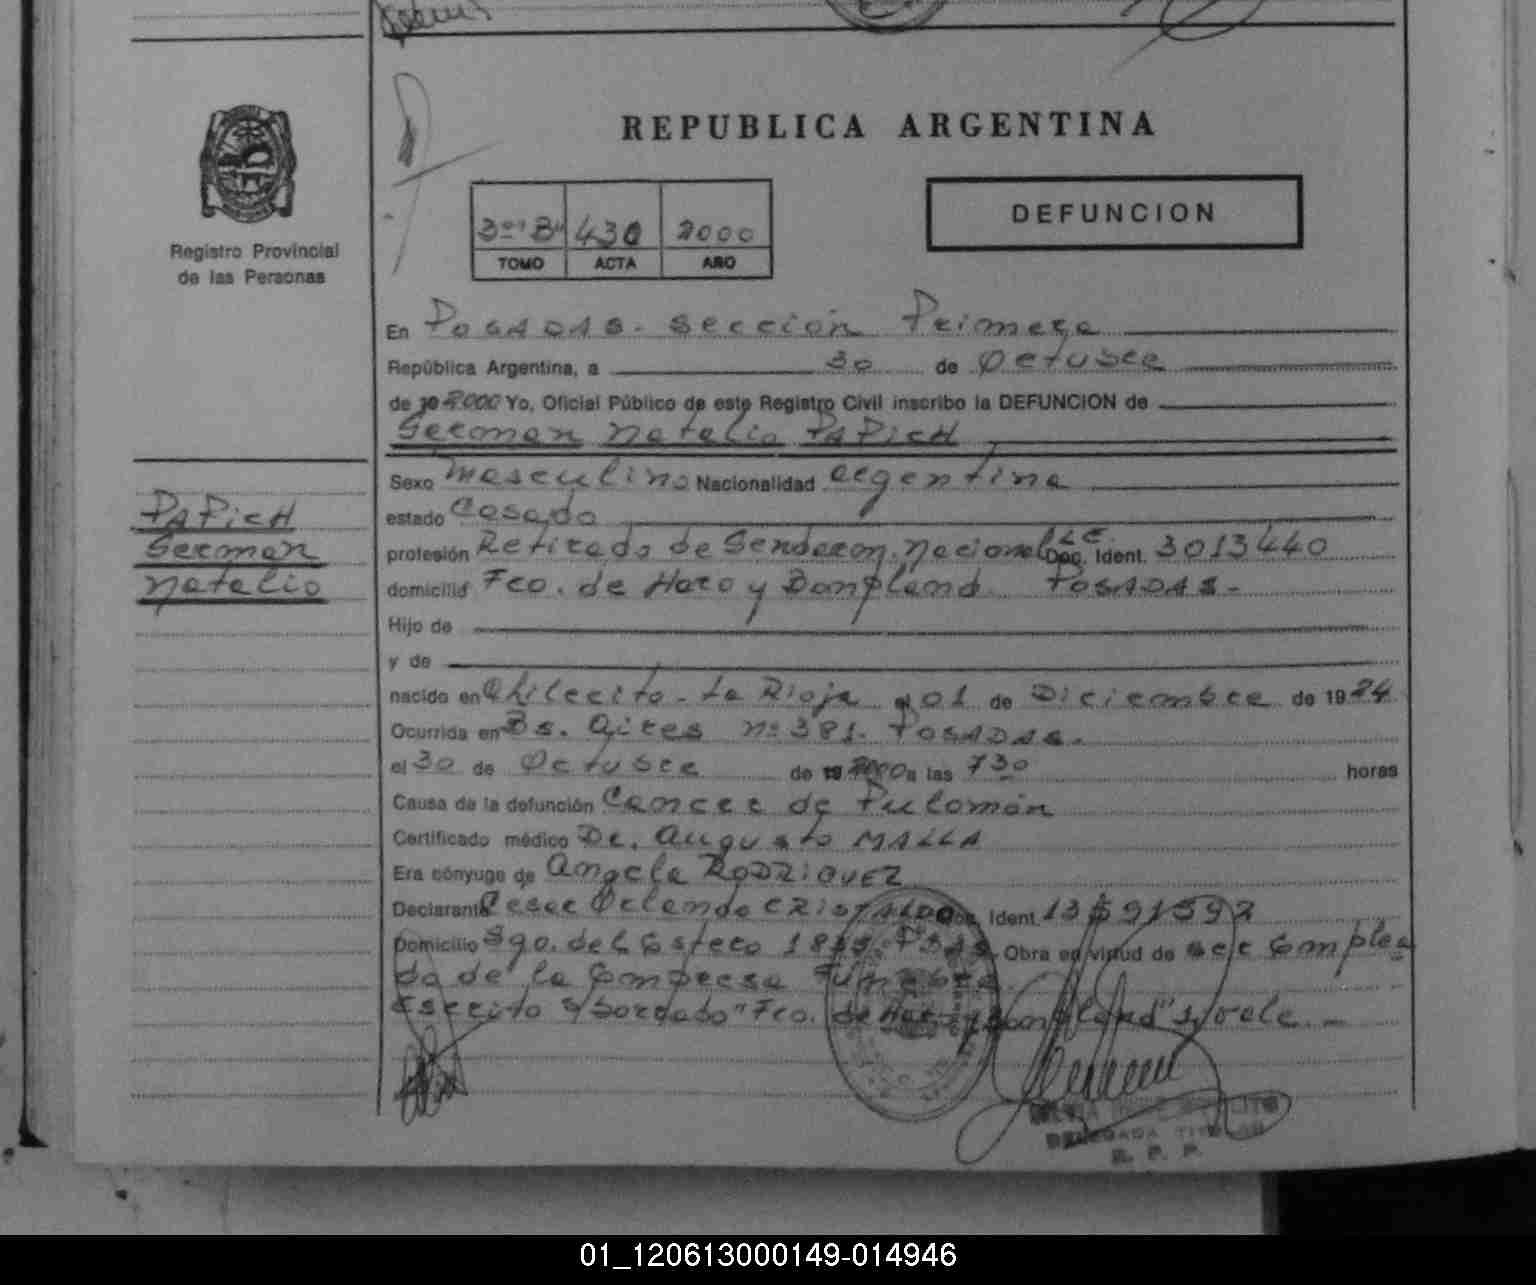 REPUBLICA ARGENTINA
Registro Provincial
de las Personas
3º "B" 430 2000
TOMO ACTA AÑO
DEFUNCION
En POSADAS. Sección Primera
República Argentina, a 30 de Octubre
de 2000 Yo, Oficial Público de este Registro Civil inscribo la DEFUNCION de
German Natalio PAPICH
PAPICH
German
Natalio
Sexo Masculino Nacionalidad argentina
estado Casado
profesión Retirado de Gendarm. Nacional L.E. Doc. Ident. 3013440
domicilio Fco. de Haro y Bonpland POSADAS-
Hijo de
y de
nacido en Chilecito - La Rioja el 01 de Diciembre de 1924
Ocurrida en Bs. Aires nº 381. POSADAS.
el 30 de Octubre de 2000 a las 730 horas
Causa de la defunción Cancer de Pulomón
Certificado médico Dr. Augusto MALLA
Era cónyuge de Angela RODRIGUEZ
Declarante Cesar Orlando CRISTALDO Doc. Ident. 13591592
Domicilio Sgo. del Estero Pdas. Obra en virtud de ser Emplea
do de la Empresa Funebre.
Escrito s/borrado "Fco. de Haro y Bonpland" s/vale.-
DELEGADA TITULAR
R. P. P.
01_120613000149-014946